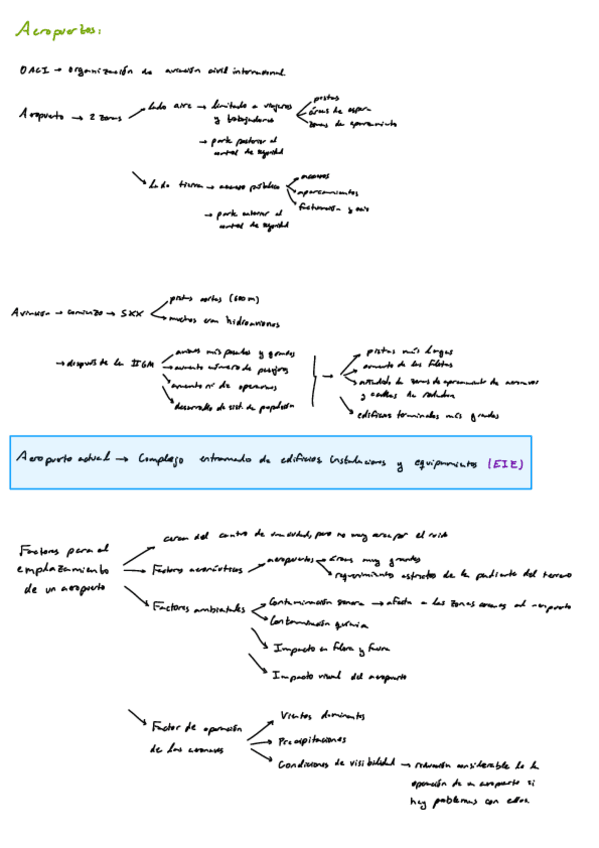 Aeropuertos:
OACI → organización de aviación civil internacional
Aeropuerto → 2 zonas
lado aire → limitado a viajeros
y trabajadores
pistas
áreas de espera
zonas de aparcamiento
→ parte posterior al
control de seguridad
lado tierra → acceso público
accesos
aparcamientos
facturación y ocio
→ parte anterior al
control de seguridad
Aviación → comienzo → SXX
pistas cortas (600m)
muchos eran hidroaviones
→ después de la IIGM
aviones más pesados y grandes
aumento número de pasajeros
aumento nº de operaciones
desarrollo de sist. de propulsión
→
pistas más largas
aumento de las flotas
de zonas de aparcamiento de aeronaves
y calles de rodadura
edificios terminales más grandes
Aeropuerto actual → Complejo entramado de edificios instalaciones y equipamientos (EIE)
Factores para el
emplazamiento
de un aeropuerto
cerca del centro de una ciudad, pero no muy cerca por el ruido
Factores
aeropuertos
áreas muy grandes
requerimientos estrictos de la pendiente del terreno
Factores ambientales
Contaminación sonora → afecta a las zonas cercanas al aeropuerto
Contaminación química
Impacto en flora y fauna
Impacto visual del aeropuerto
Factor de operación
de las aeronaves
Vientos dominantes
Precipitaciones
Condiciones de visibilidad → reducción considerable de la
operación de un aeropuerto si
hay problemas con ellos